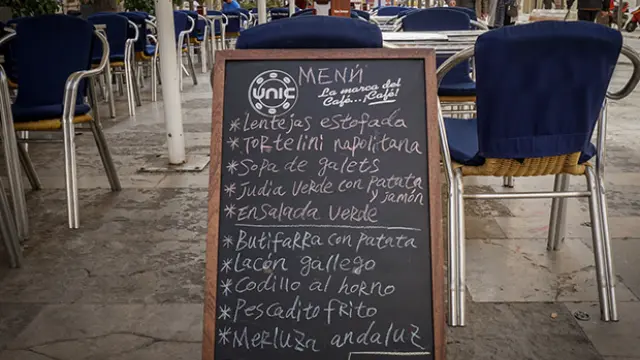 UNIC
MENÚ
La marca del
Café...¡Café!
*Lentejas estofada
*Tortelini napolitana
*Sopa de galets
*Judia verde con patata
y jamón
*Ensalada verde
*Butifarra con patata
*Lacón gallego
*Codillo al horno
*Pescadito frito
*Merluza andaluz